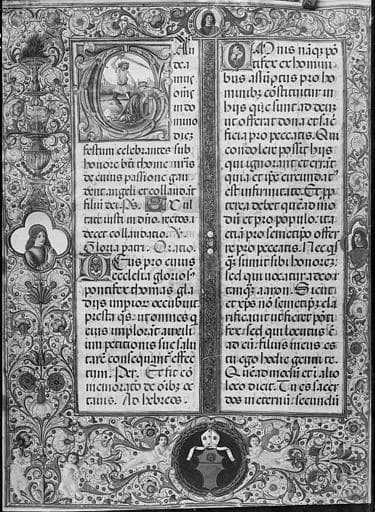 Gau
dea
mus
omnes
in do
mino
diez
festum celebrantes sub
honore bti thome mris
de cuius passione gau
dent angeli et collaudāt
filiū dei. Ps. Exul
tate iusti in dño. rectos
decet collaudatio. V.
Gloria patri. Oratio.
Deus pro cuius
ecclesia glorios9
pontifex thomas gla
dijs impior occubuit
presta qs: ut omnes q
eius implorāt auxili
um petitionis sue salu
tare consequant effec
tum. Per. Et fit cō
memoratō de oībz
Ad hebreos.
Omnis nāqz pō
tifex ex homini
bus assūptus pro ho
minibz constituitur in
hijs que sunt ad deuz
ut offerat dona et sacri
ficia pro peccatis. Qui
condolere possit hijs
qui ignorant et errāt
quia et ipe circundat9
est infirmitate. Et pro
pterea debet quēadmo
dū et pro populo. ita
etiā pro semetipo offer
re pro peccatis. Nec qs
qz sumit sibi honorez
sed qui uocatur a deo
tamqz aaron. Sicut
et xp̄s nō semetipz cla
rificauit ut fieret pōti
fex: sed qui locutus ē
ad eū: filius meus es
tu ego hodie genui te.
Quēadmodū et ī alio
loco dicit. Tu es sacer
dos in eternū: secundū